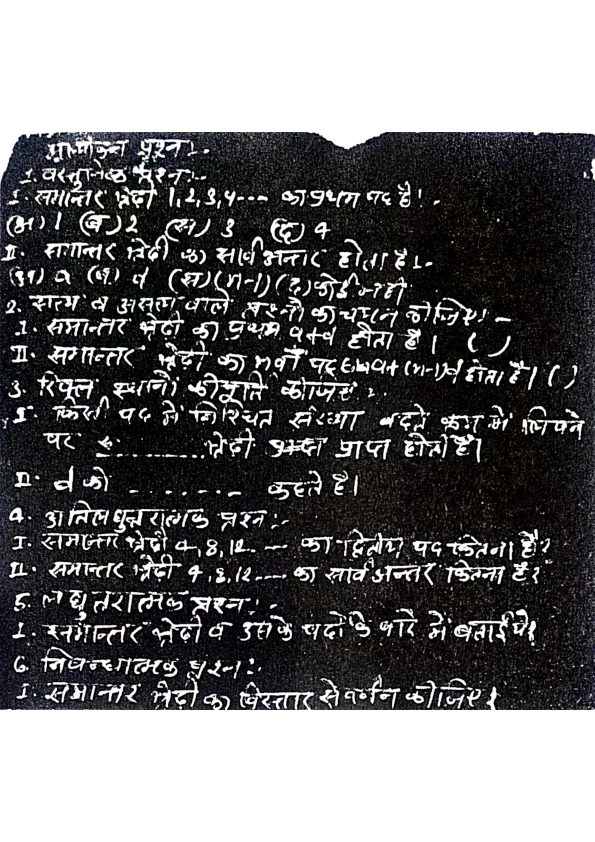 प्रायोजन प्रश्न:-
1. वस्तुनिष्ठ प्रश्न:-
I. समान्तर श्रेढी 1,2,3,4---- का प्रथम पद है:-
(अ) 1 (ब) 2 (स) 3 (द) 4
II. समान्तर श्रेढी का सार्व अन्तर होता है:-
(अ) a (ब) d (स) (n-1) (द) कोई नही
2. सत्य व असत्य वाले प्रश्नो का चयन कीजिए:-
I. समान्तर श्रेढी का प्रथम a+d होता है। ( )
II. समान्तर श्रेढी का nवाँ पद a+(n-1)d होता है। ( )
3. रिक्त स्थानो की पूर्ति कीजिए:
I. किसी पद में निश्चित संख्या बढते क्रम में लिखने
पर ........... श्रेढी प्राप्त होती है।
II. d को - - - - - - - कहते है।
4. अतिलघुत्तरात्मक प्रश्न:-
I. समान्तर श्रेढी 4,8,12---- का द्वितीय पद कितना है?
II. समान्तर श्रेढी 4,8,12---- का सार्व अन्तर कितना है?
5. लघुतरात्मक प्रश्न:-
I. समान्तर श्रेढी व उसके पदो के बारे में बताईये।
6. निबन्धात्मक प्रश्न:-
I. समान्तर श्रेढी का विस्तार से वर्णन कीजिए।